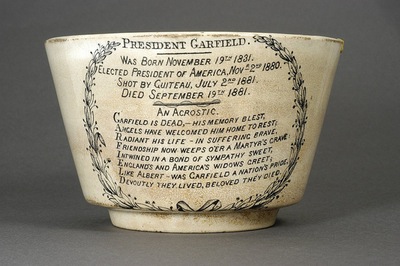 PRESIDENT GARFIELD.
WAS BORN NOVEMBER 19TH 1831.
ELECTED PRESIDENT OF AMERICA, NOVR 2ND 1880.
SHOT BY GUITEAU, JULY 2ND 1881.
DIED SEPTEMBER 19TH 1881.
AN ACROSTIC.
GARFIELD IS DEAD,—HIS MEMORY BLEST,
ANGELS HAVE WELCOMED HIM HOME TO REST;
RADIANT HIS LIFE - IN SUFFERING BRAVE.
FRIENDSHIP NOW WEEPS O'ER A MARTYR'S GRAVE
INTWINED IN A BOND OF SYMPATHY SWEET,
ENGLAND'S AND AMERICA'S WIDOWS GREET,
LIKE ALBERT—WAS GARFIELD A NATION'S PRIDE,
DEVOUTLY THEY LIVED, BELOVED THEY DIED.